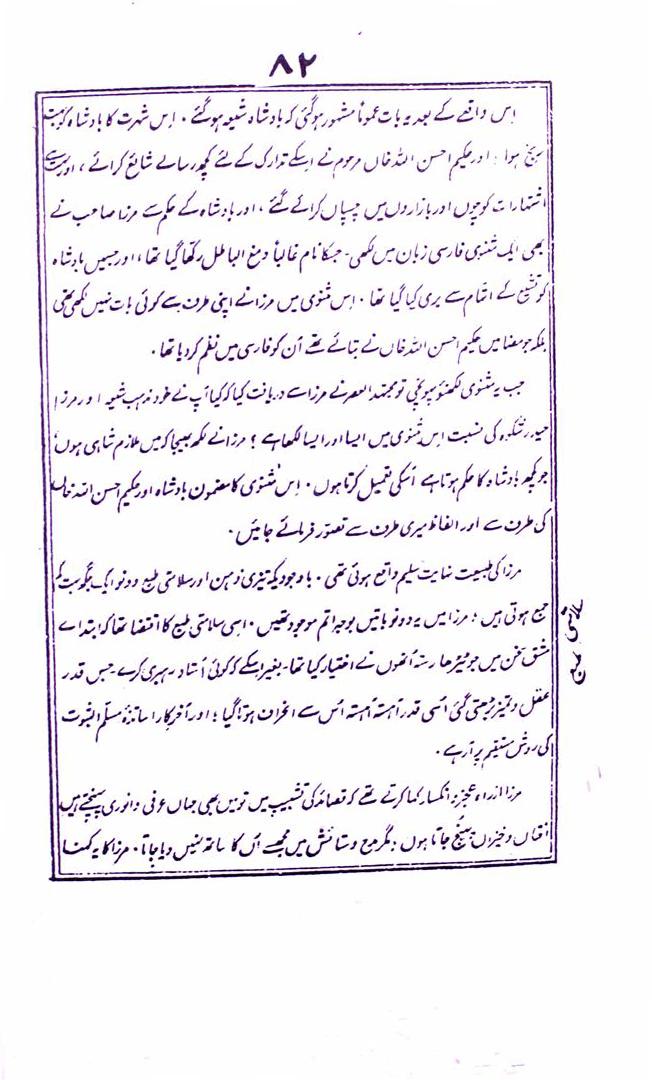 ۸۲
اِس واقعے کے بعد یہ بات عموماً مشہور ہو گئی کہ بادشاہ شیعہ ہو گئے۔ اِس شہرت کا بادشاہ کو بہت
رنج ہوا؛ اور حکیم احسن اللہ خاں مرحوم نے اسکے تدارک کے لئے کچھ رسالے شائع کرائے، اور بہت سے
اشتہارات کوچوں اور بازاروں میں چسپاں کرائے گئے، اور بادشاہ کے حکم سے مرزا صاحب نے
بھی ایک مثنوی فارسی زبان میں لکھی۔ جسکا نام غالباً دمغ الباطل رکھا گیا تھا، اور جسمیں بادشاہ
کو تشیّع کے اتہام سے بری کیا گیا تھا۔ اِس مثنوی میں مرزا نے اپنی طرف سے کوئی بات نہیں لکھی تھی
بلکہ جو مضامین حکیم احسن اللہ خاں نے بتائے تھے اُن کو فارسی میں نظم کر دیا تھا۔
جب یہ مثنوی لکھنؤ پہونچی تو مجتہد العصر نے مرزا سے دریافت کیا کہ کیا آپ نے خود مذہب شیعہ اور مرزا
حیدر شکوہ کی نسبت اِس مثنوی میں ایسا اور ایسا لکھا ہے؟ مرزا نے لکھ بھیجا کہ میں ملازم شاہی ہوں
جو کچھ بادشاہ کا حکم ہوتا ہے اُسکی تعمیل کرتا ہوں۔ اِس مثنوی کا مضمون بادشاہ اور حکیم احسن اللہ خاں
کی طرف سے اور الفاظ میری طرف سے تصوّر فرمائے جائیں۔
مرزا کی طبیعت نہایت سلیم واقع ہوئی تھی۔ باوجودیکہ تیزی ذہن اور سلامتی طبع دونو ایک جگہ بہت کم
جمع ہوتی ہیں؛ مرزا میں یہ دونو باتیں بوجہِ اتم موجود تھیں۔ اسی سلامتی طبع کا اقتضا تھا کہ ابتداے
مشق سخن میں جو ٹیڑھا رستہ اُنھوں نے اختیار کیا تھا۔ بغیر اسکے کہ کوئی اُستاد رہبری کرے جس قدر
عقل و تمیز بڑھتی گئی اُسی قدر آہستہ آہستہ اُس سے انحراف ہوتا گیا؛ اور آخر کار اساتذۂ مسلّم الثبوت
کی روش مستقیم پر آ رہے۔
سلامتی طبع
مرزا از راہ عجز و انکسار کہا کرتے تھے کہ قصائد کی تشبیب میں تو میں بھی جہاں عرفی و انوری پہنچتے ہیں
اُفتاں و خیزاں پہنچ جاتا ہوں؛ مگر مدح و ستائش میں مجھسے اُن کا ساتھ نہیں دیا جاتا۔ مرزا کا یہ کہنا